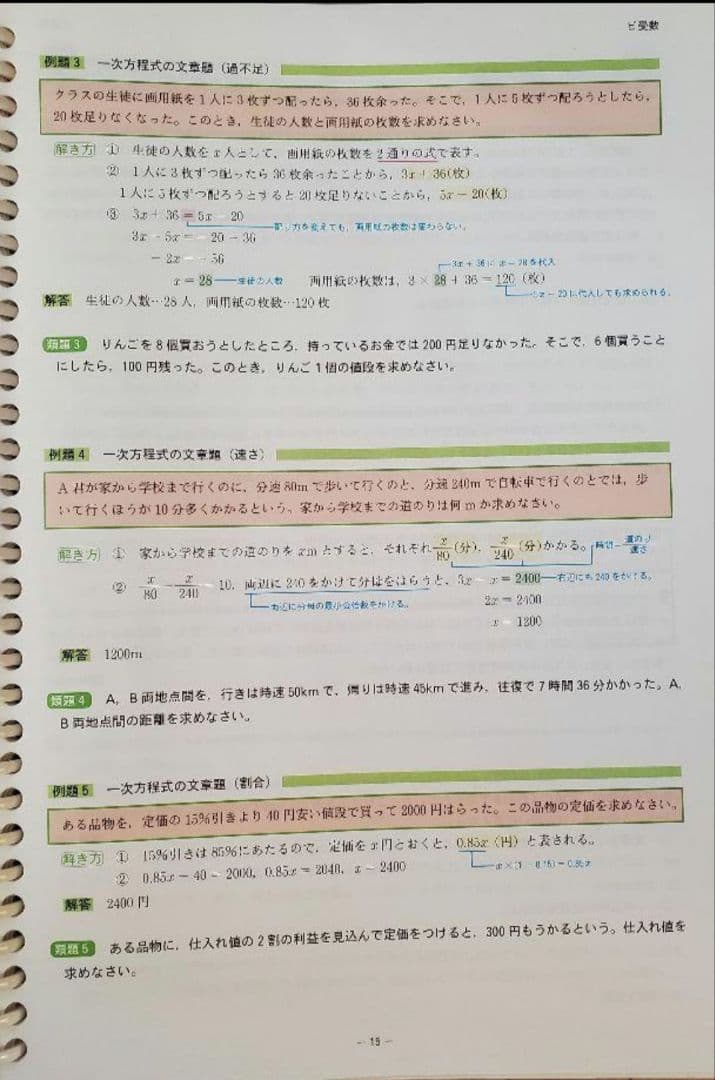 ビ受数
例題3 一次方程式の文章題（過不足）
クラスの生徒に画用紙を1人に3枚ずつ配ったら，36枚余った。そこで，1人に5枚ずつ配ろうとしたら，
20枚足りなくなった。このとき，生徒の人数と画用紙の枚数を求めなさい。
解き方 ① 生徒の人数をx人として，画用紙の枚数を2通りの式で表す。
② 1人に3枚ずつ配ったら36枚余ったことから，3x＋36(枚)
1人に5枚ずつ配ろうとすると20枚足りないことから，5x－20(枚)
③ 3x＋36＝5x－20
配り方を変えても，画用紙の枚数は変わらない。
3x－5x＝－20－36
－2x＝－56
3x＋36にx＝28を代入
x＝28 生徒の人数 画用紙の枚数は，3×28＋36＝120（枚）
5x－20に代入しても求められる。
解答 生徒の人数…28人，画用紙の枚数…120枚
類題3 りんごを8個買おうとしたところ，持っているお金では200円足りなかった。そこで，6個買うこと
にしたら，100円残った。このとき，りんご1個の値段を求めなさい。
例題4 一次方程式の文章題（速さ）
A君が家から学校まで行くのに，分速80mで歩いて行くのと，分速240mで自転車で行くのとでは，歩
いて行くほうが10分多くかかるという。家から学校までの道のりは何mか求めなさい。
解き方 ① 家から学校までの道のりをxmとすると，それぞれx/80(分)，x/240(分)かかる。 時間＝道のり/速さ
② x/80－x/240＝10，両辺に240をかけて分母をはらうと，3x－x＝2400 右辺にも240をかける。
両辺に分母の最小公倍数をかける。
2x＝2400
x＝1200
解答 1200m
類題4 A，B両地点間を，行きは時速50kmで，帰りは時速45kmで進み，往復で7時間36分かかった。A，
B両地点間の距離を求めなさい。
例題5 一次方程式の文章題（割合）
ある品物を，定価の15%引きより40円安い値段で買って2000円はらった。この品物の定価を求めなさい。
解き方 ① 15%引きは85%にあたるので，定価をx円とおくと，0.85x（円）と表される。
x×(1－0.15)＝0.85x
② 0.85x－40＝2000，0.85x＝2040，x＝2400
解答 2400円
類題5 ある品物に，仕入れ値の2割の利益を見込んで定価をつけると，300円もうかるという。仕入れ値を
求めなさい。
－15－